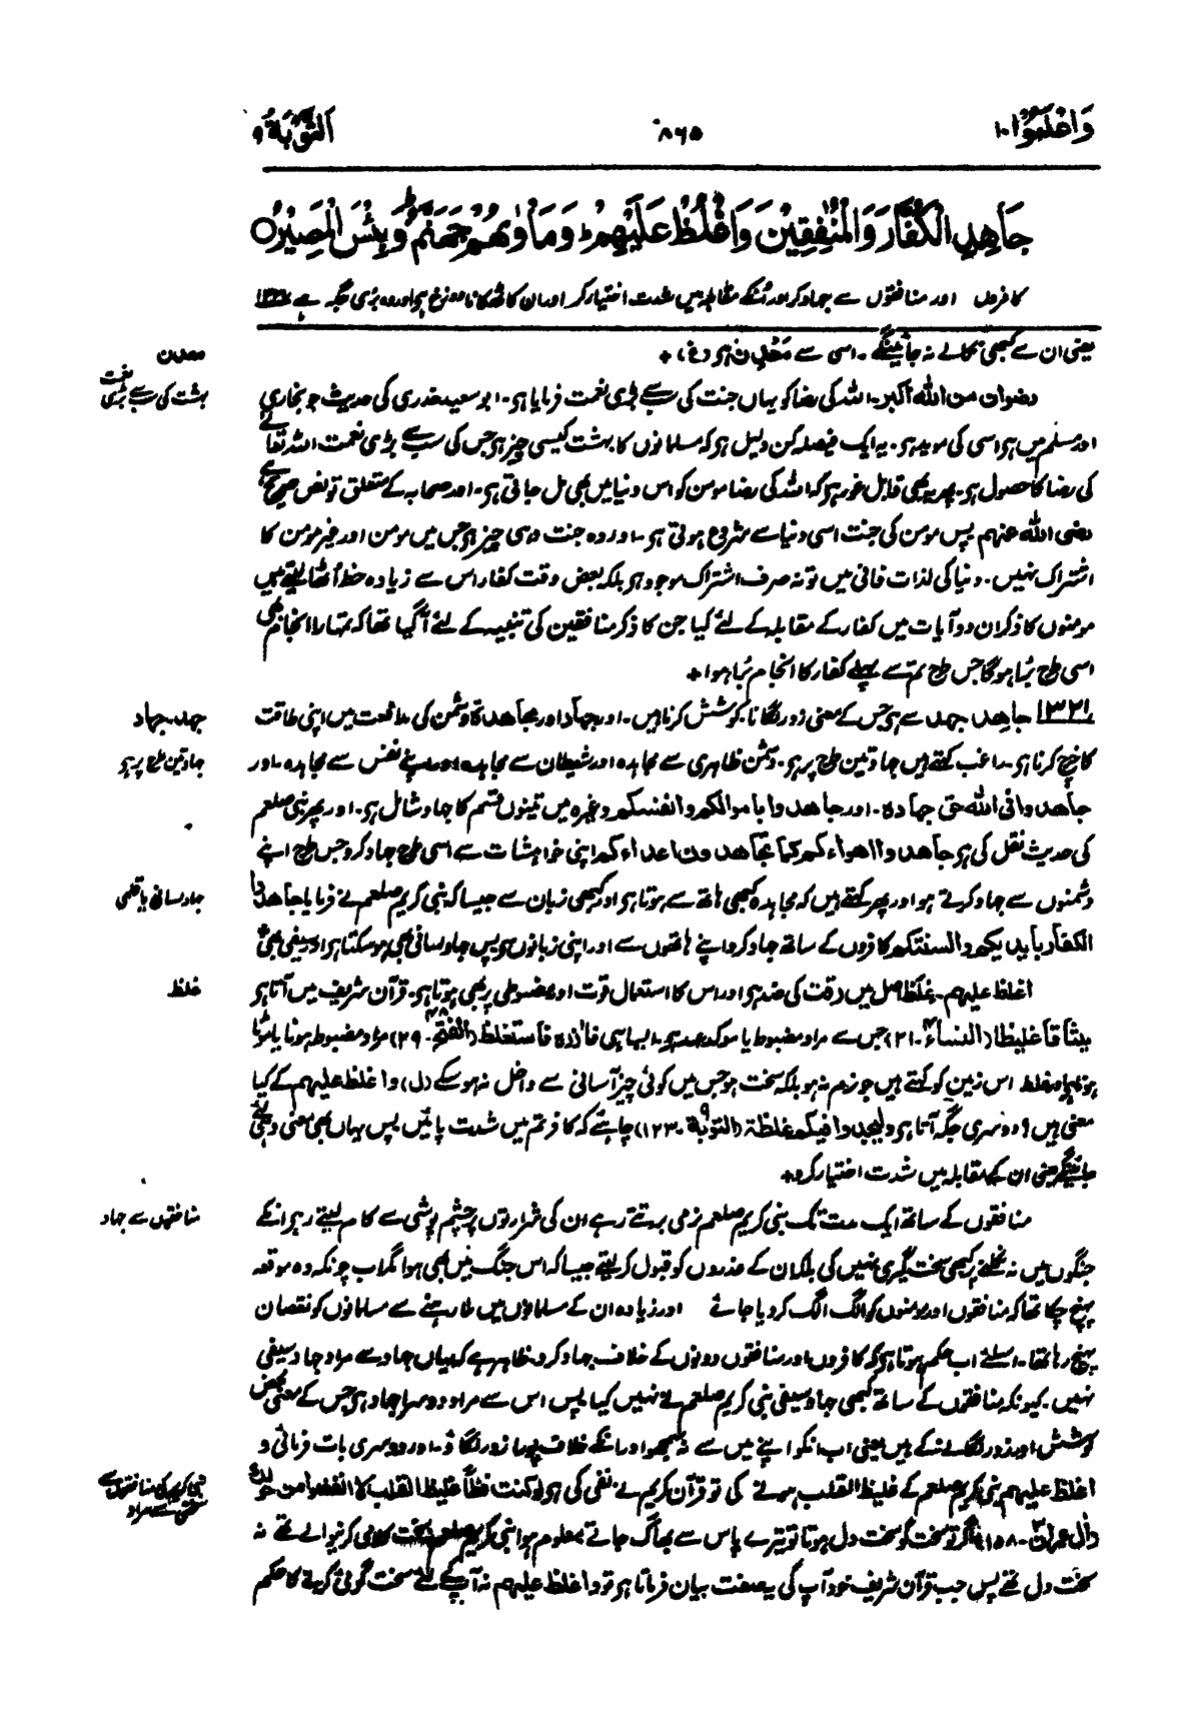 وَاعْلَمُوْا ۱۰
۸۶۵
اَلتَّوْبَةُ ۹
جَاهِدِ الْكُفَّارَ وَالْمُنٰفِقِيْنَ وَاغْلُظْ عَلَيْهِمْ ؕ وَمَاْوٰىهُمْ جَهَنَّمُ ؕ وَبِئْسَ الْمَصِيْرُ ○
کافروں اور منافقوں سے جہاد کر اور اُنکے مقابلہ میں شدت اختیار کر اور ان کا ٹھکانا دوزخ ہو اور وہ بُری جگہ ہے ۱۳۲۱
یعنی ان سے کبھی نکالے نہ جائینگے۔ اسی سے مَعْدِن ہو (غ)+
معدن
رضوان من الله اکبر۔ اللہ کی رضا کو یہاں جنت کی سب سے بڑی نعمت فرمایا ہو۔ ابو سعید خدری کی حدیث جو بخاری
بہشت کی سب سے بڑی نعمت
اور مسلم میں ہو اسی کی موید ہو۔ یہ ایک فیصلہ کن دلیل ہو کہ مسلمانوں کا بہشت کیسی چیز ہو جس کی سب سے بڑی نعمت اللہ تعالےٰ
کی رضا کا حصول ہو۔ پھر یہ بھی قابل غور ہو کہ اللہ کی رضا مومن کو اس دنیا میں بھی مل جاتی ہو۔ اور صحابہ کے متعلق تو نص صریح ہے
رضی اللہ عنہم پس مومن کی جنت اسی دنیا سے شروع ہوتی ہو۔ اور وہ جنت وہی چیز ہو جس میں مومن اور غیر مومن کا
اشتراک نہیں۔ دنیا کی لذات فانی میں تو نہ صرف اشتراک موجود ہو بلکہ بعض وقت کفار اس سے زیادہ حظ اُٹھا لیتے ہیں
مومنوں کا ذکر ان دو آیات میں کفار کے مقابلہ کے لئے کیا جن کا ذکر منافقین کی تنبیہ کے لئے آگیا تھا کہ تمہارا انجام بھی
اسی طرح بُرا ہوگا جس طرح تم سے پہلے کفار کا انجام بُرا ہوا+
۱۳۲۱ جاهد۔ جهد سے ہو جس کے معنی زور لگانا۔ کوشش کرنا ہیں۔ اور جهاد اور مجاهدة دشمن کی مدافعت میں اپنی طاقت
جهد۔ جهاد
کا خرچ کرنا ہو۔ راغب کہتے ہیں جہاد تین طرح پر ہو۔ دشمن ظاہری سے مجاہدہ اور شیطان سے مجاہدہ اور اپنے نفس سے مجاہدہ۔ اور
جہاد تین طرح پر ہو
جاهدوا فی الله حق جهاده۔ اور جاهدوا باموالکم وانفسکم وغیرہ میں تینوں قسم کا جہاد شامل ہو۔ اور پھر نبی صلعم
کی حدیث نقل کی ہو جاهدوا اهواءکم کما تجاهدون اعداءکم اپنی خواہشات سے اسی طرح جہاد کرو جس طرح اپنے
دشمنوں سے جہاد کرتے ہو اور پھر کہتے ہیں کہ مجاہدہ کبھی ہاتھ سے ہوتا ہو اور کبھی زبان سے جیسا کہ نبی کریم صلعم نے فرمایا جاهدوا
جہاد لسانی یا قلمی
الکفار بایدیکم والسنتکم کافروں کے ساتھ جہاد کرو اپنے ہاتھوں سے اور اپنی زبانوں سے پس جہاد لسانی بھی ہو سکتا ہو اور سیفی بھی
اغلظ علیهم۔ غلظ اصل میں رقت کی ضد ہو اور اس کا استعمال قوت اور مضبوطی پر بھی ہوتا ہو۔ قرآن شریف میں آتا ہو
غلظ
میثاقا غلیظا (النساء ۴۔۲۱) جس سے مراد مضبوط یا موکد عہد ہو۔ ایسا ہی فازره فاستغلظ (الفتح ۴۸۔۲۹) مراد مضبوط ہونا یا موٹا
ہونا ہو اور غلظ اس زمین کو کہتے ہیں جو نرم نہ ہو بلکہ سخت ہو جس میں کوئی چیز آسانی سے داخل نہ ہو سکے (ل) واغلظ علیهم کے کیا
معنی ہیں؟ دوسری جگہ آتا ہو ولیجدوا فیکم غلظة (التوبة ۹۔۱۲۳) چاہئے کہ کافر تم میں شدت پائیں پس یہاں بھی معنی وہی لئے
جائینگے یعنی ان کے مقابلہ میں شدت اختیار کرو+
منافقوں کے ساتھ ایک مدت تک نبی کریم صلعم نرمی برتتے رہے ان کی شرارتوں پر چشم پوشی سے کام لیتے رہے انکے
منافقوں سے جہاد
جنگوں میں نہ نکلنے پر کبھی سخت گیری نہیں کی بلکہ ان کے عذروں کو قبول کر لیتے جیسا کہ اس جنگ میں بھی ہوا مگر اب چونکہ وہ موقعہ
پہنچ چکا تھا کہ منافقوں اور مومنوں کو الگ الگ کر دیا جائے اور زیادہ ان کے مسلمانوں میں ملا رہنے سے مسلمانوں کو نقصان
پہنچ رہا تھا۔ اسلئے اب حکم ہوتا ہو کہ کافروں اور منافقوں دونوں کے خلاف جہاد کرو۔ ظاہر ہے کہ یہاں جہاد سے مراد جہاد سیفی
نہیں۔ کیونکہ منافقوں کے ساتھ کبھی جہاد سیفی نبی کریم صلعم نے نہیں کیا پس اس سے مراد دوسرا جہاد ہو جس کے معنی محض
کوشش اور زور لگانے کے ہیں یعنی اب انکو اپنے میں سے نہ سمجھو اور انکے خلاف پورا زور لگاؤ۔ اور دوسری بات فرمائی و
اغلظ علیهم نبی کریم صلعم کے غلیظ القلب ہونے کی تو قرآن کریم نے نفی کی ہو لوکنت فظا غلیظ القلب لا انفضوا من حولك
نبی کریم کی منافقوں سے سختی سے مراد
(اٰل عمران ۳۔۱۵۸) اگر تو سخت گو سخت دل ہوتا تو تیرے پاس سے بھاگ جاتے معلوم ہوا نبی کریم صلعم نہ سخت کلامی کرنیوالے تھے نہ
سخت دل تھے پس جب قرآن شریف خود آپ کی یہ صفت بیان فرماتا ہو تو واغلظ علیهم نہ آپ کے لئے سخت گوئی کرنے کا حکم